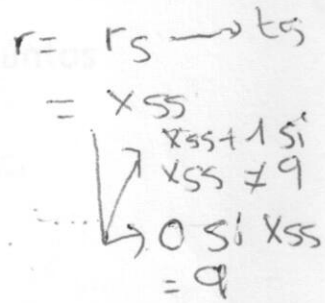 r = rs → ts
= xss
xss + 1 si
xss ≠ 9
0 si xss
= 9